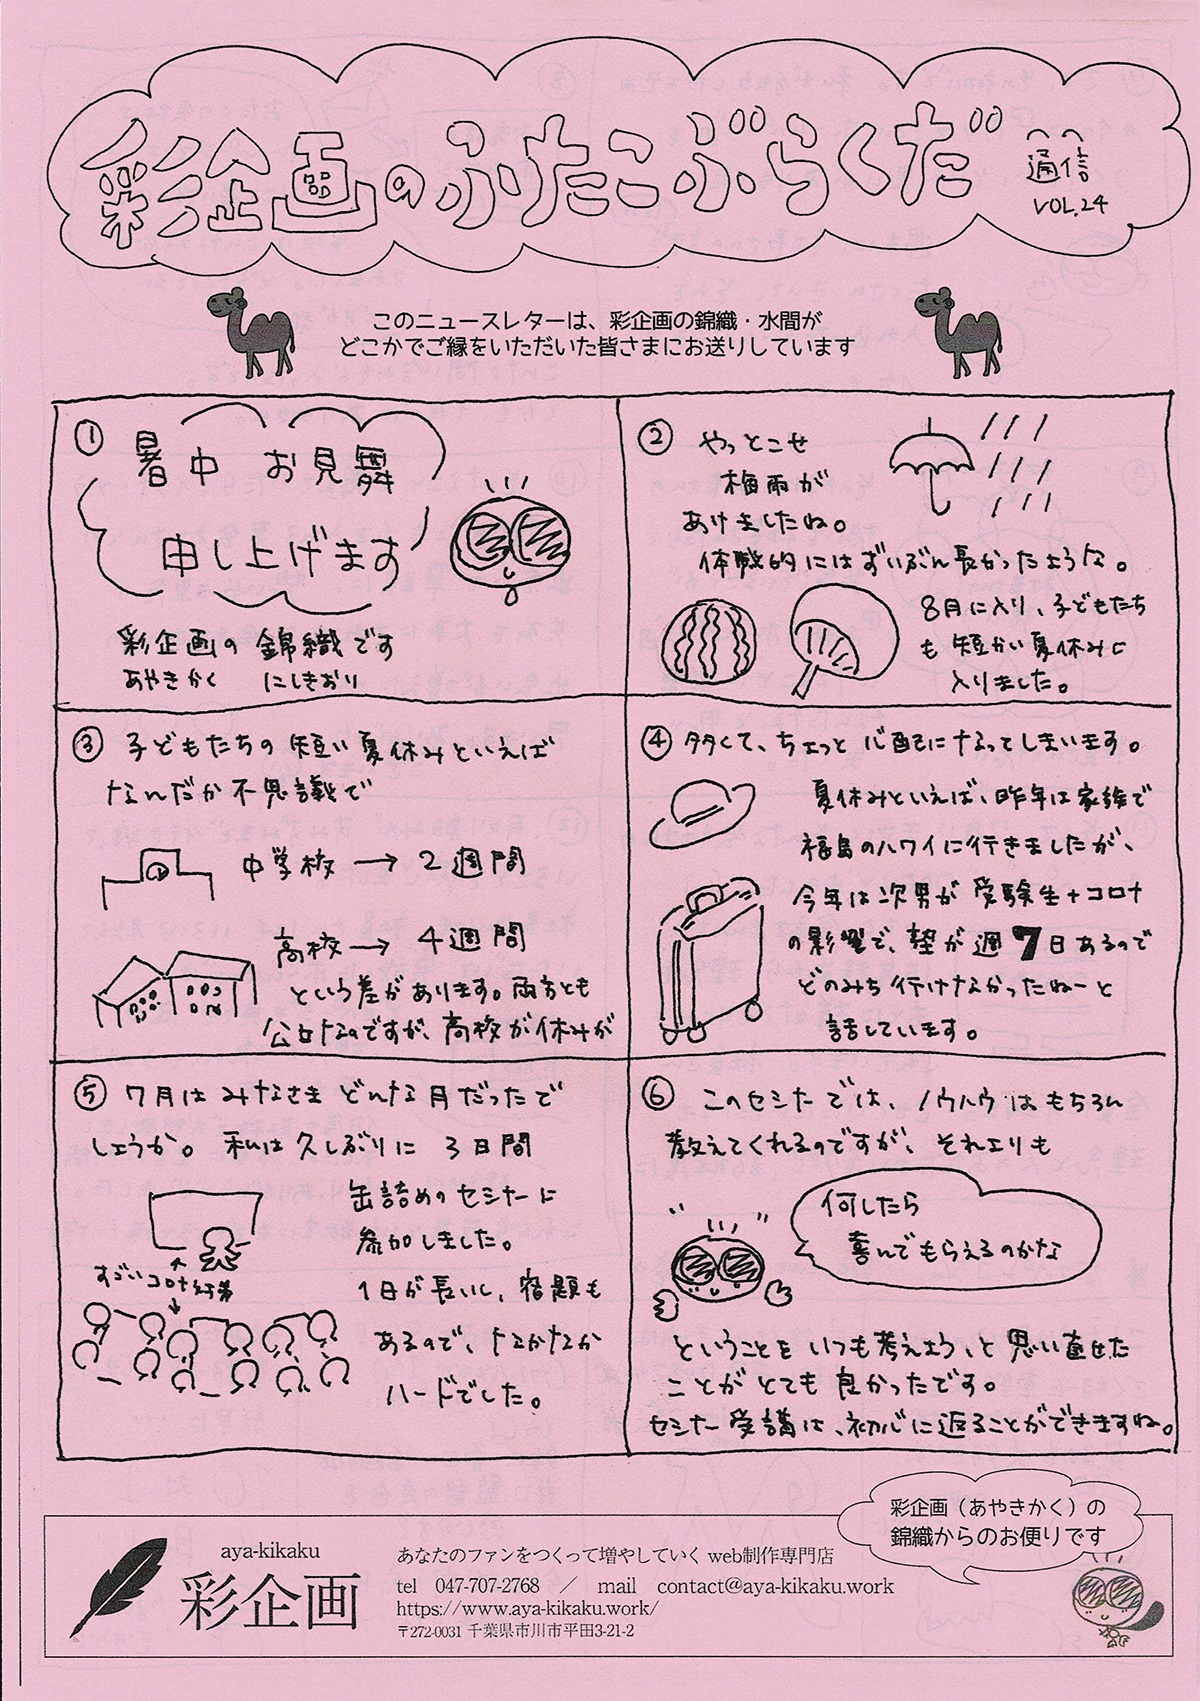 彩企画のふたこぶらくだ
通信
VOL.24
このニュースレターは、彩企画の錦織・水間が
どこかでご縁をいただいた皆さまにお送りしています
①
暑中 お見舞
申し上げます
彩企画の 錦織です
あやきかく にしきおり
②
やっとこせ
梅雨が
あけましたね。
体感的にはずいぶん長かったような。
8月に入り、子どもたち
も 短かい夏休みに
入りました。
③ 子どもたちの 短い 夏休みといえば
なんだか 不思議で
中学校 → 2週間
高校 → 4週間
という差があります。両方とも
公立なのですが、高校が休みが
④ 多くて、ちょっと 心配になってしまいます。
夏休みといえば、昨年は家族で
福島のハワイに行きましたが、
今年は次男が 受験生+コロナ
の影響で、塾が週7日あるので
どのみち 行けなかったねーと
話しています。
⑤ 7月は みなさま どんな月だったで
しょうか。 私は久しぶりに 3日間
缶詰めのセミナーに
参加しました。
1日が長いし、宿題も
あるので、なかなか
ハードでした。
すごいコロナ対策
⑥ このセミナーでは、ノウハウはもちろん
教えてくれるのですが、それよりも
何したら
喜んでもらえるのかな
ということを いつも考えよう、と 思い直せた
ことが とても 良かったです。
セミナー受講は、初心に返ることができますね。
彩企画（あやきかく）の
錦織からのお便りです
aya-kikaku
彩企画
あなたのファンをつくって増やしていく web制作専門店
tel 047-707-2768 ／ mail contact@aya-kikaku.work
https://www.aya-kikaku.work/
〒272-0031 千葉県市川市平田3-21-2